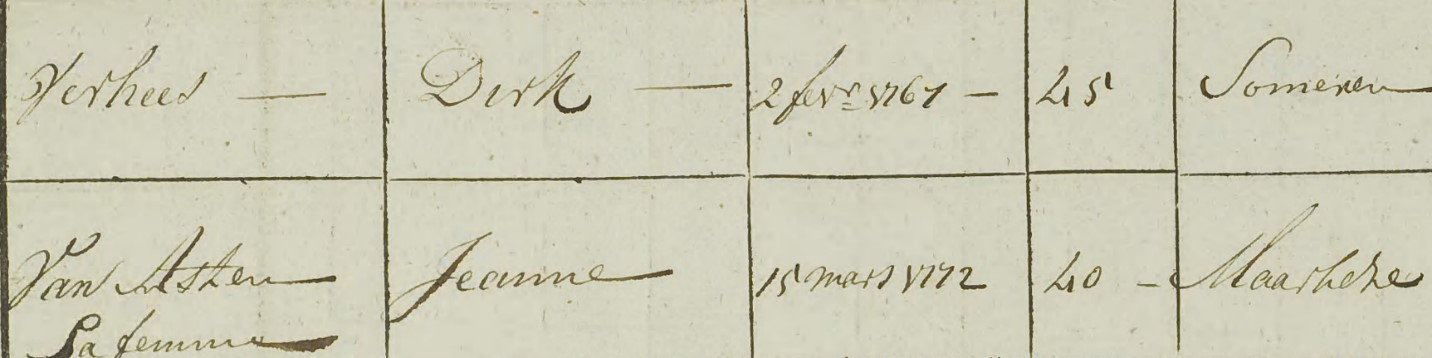 Verhees — Dirk — 2 fevr 1767 — 45 Someren
Van Asten Jeanne 15 mars 1772 40 - Maarheze
Sa femme